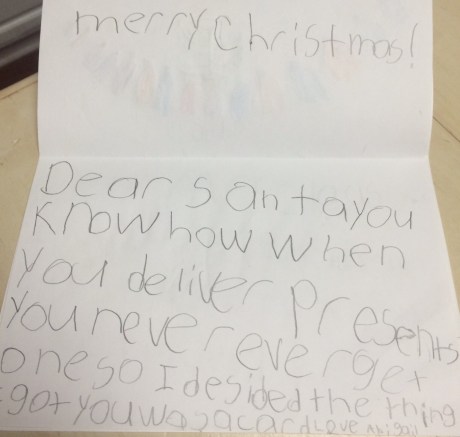 merry Christmas!
Dear Santa you
know how when
you deliver presents
you never ever get
one so I desided the thing
I got you was a card Love Abigail